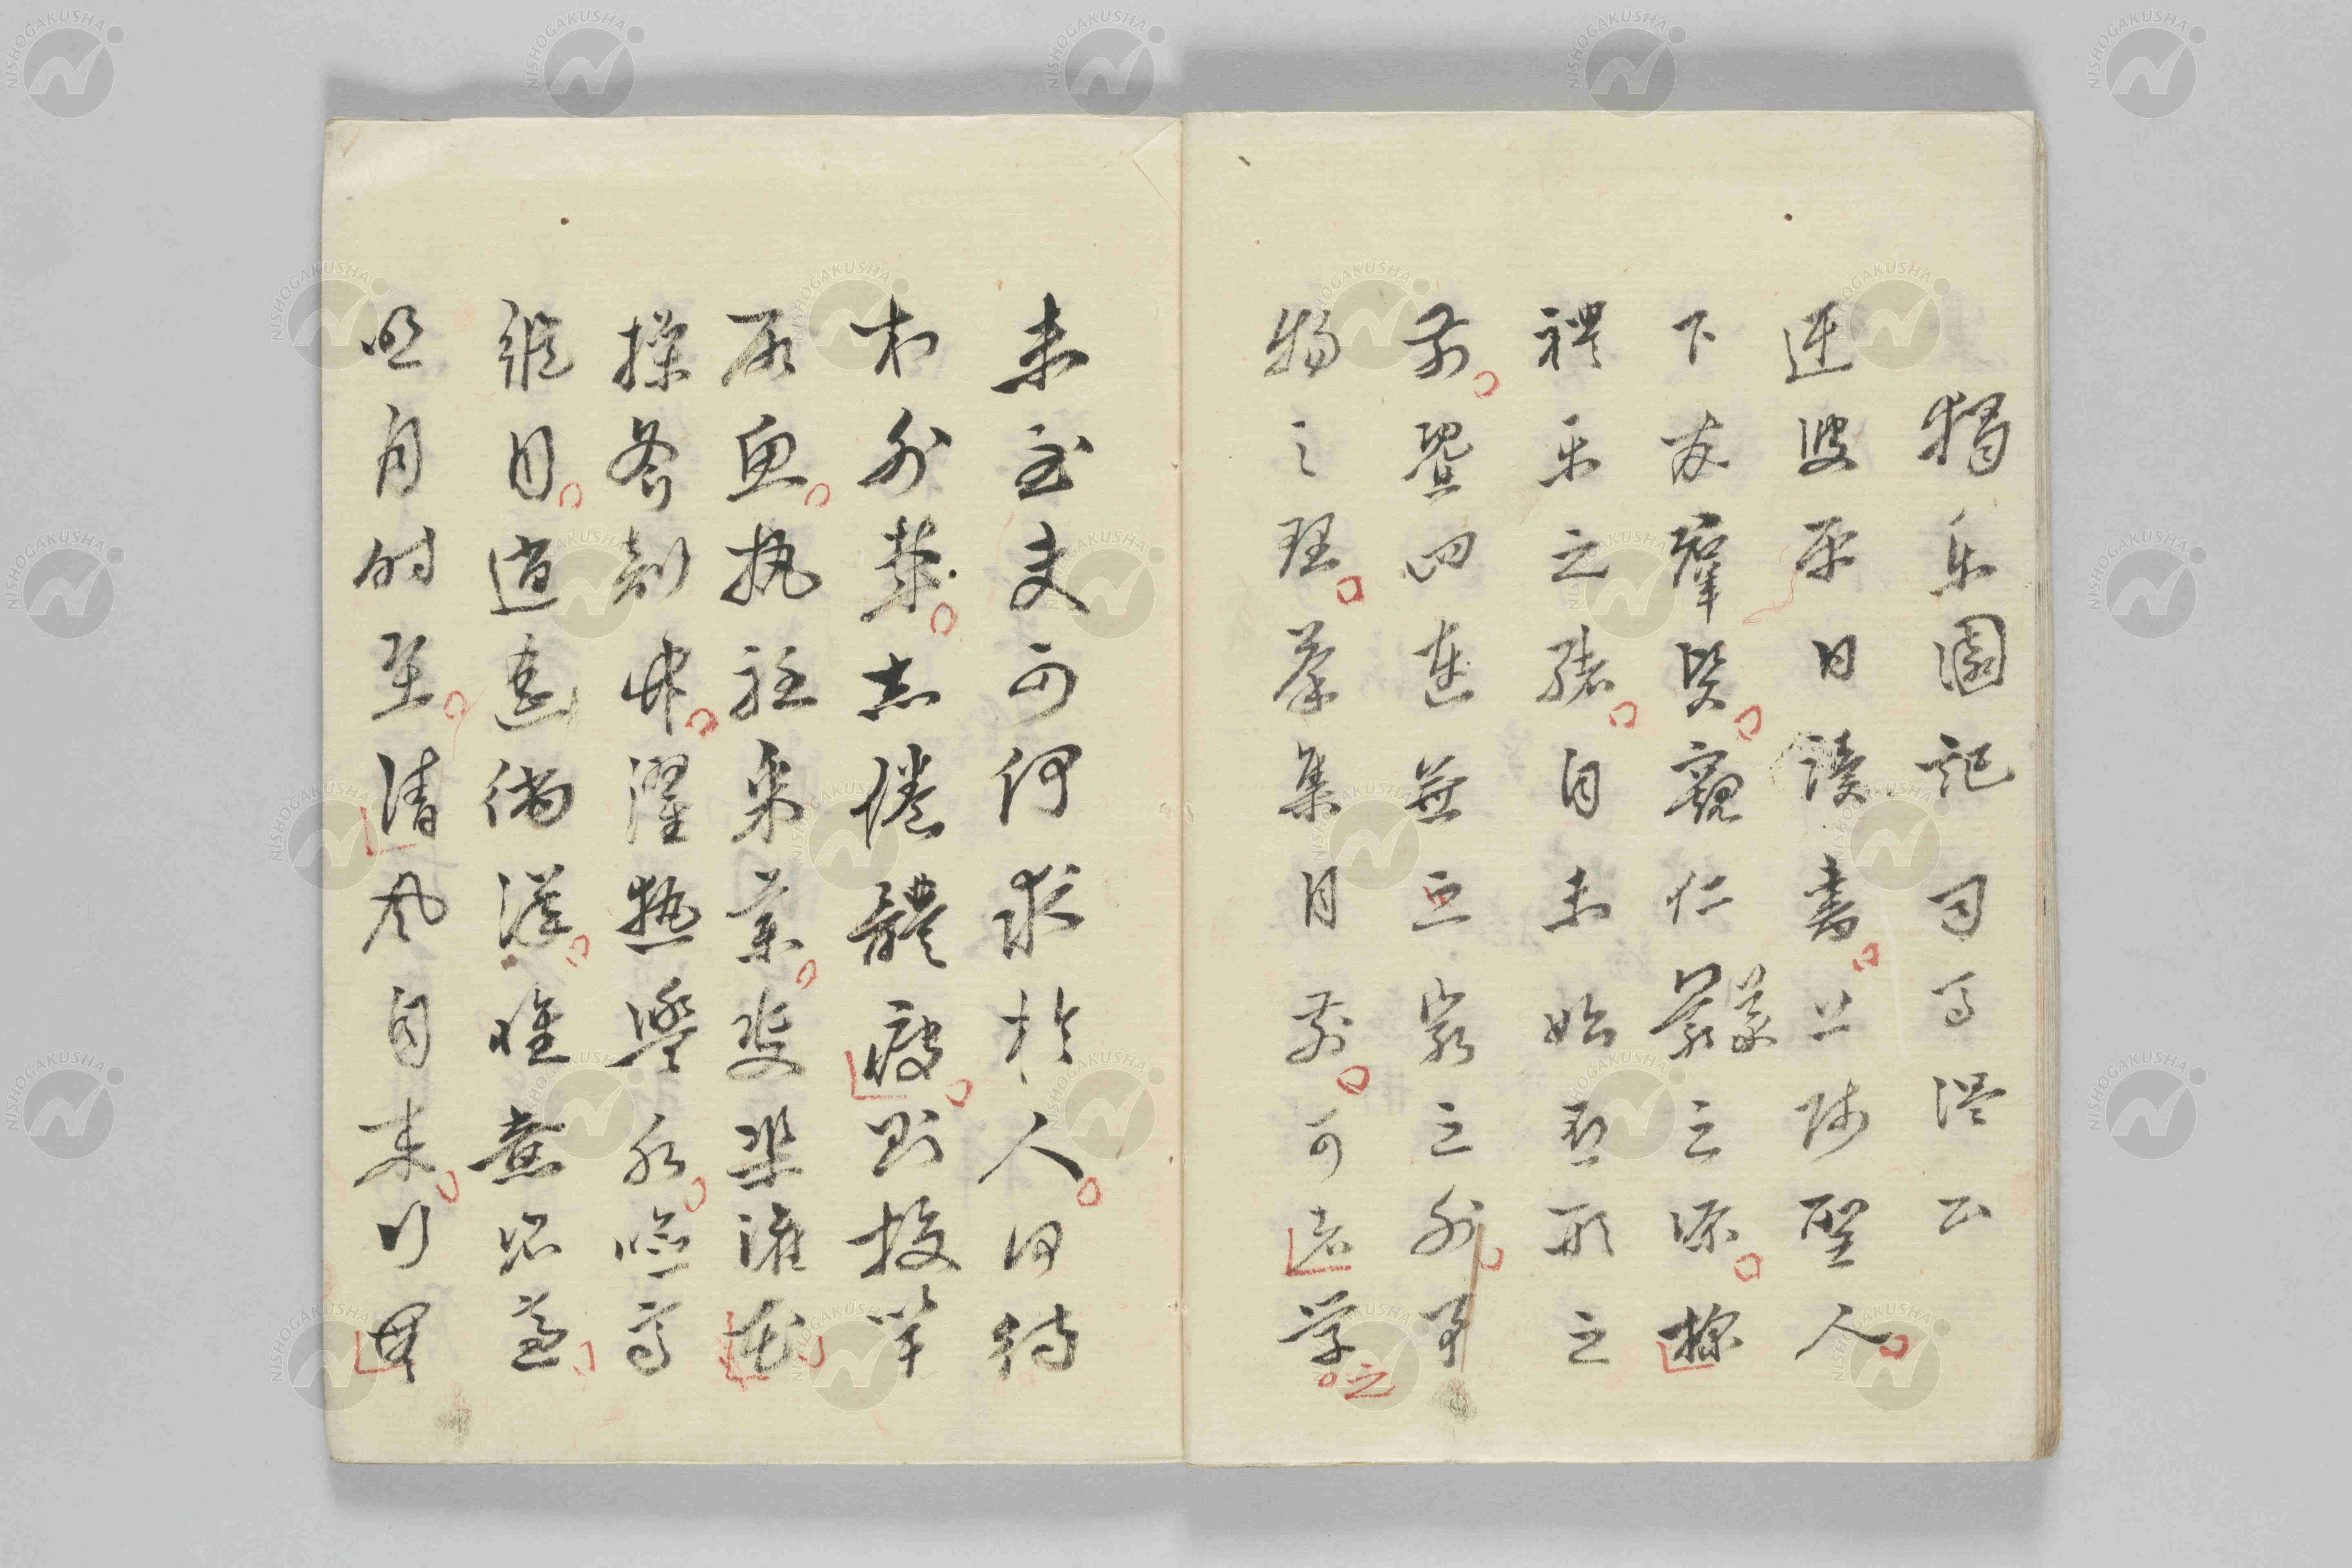 獨樂園記 司馬温公
迂叟平日讀書上師聖人
下友羣賢窺仁義之源探
禮樂之緒自未始有形之
前曁四達無窮之外事
物之理擧集目前可者學之
未至夫可何求於人何待
於外哉志倦體疲則投竿
取魚執衽采藥決渠灌花
操斧剖竹濯熱盥水臨高
縱目逍遙徜徉唯意所適
明月時至淸風自來行無
NISHOGAKUSHA